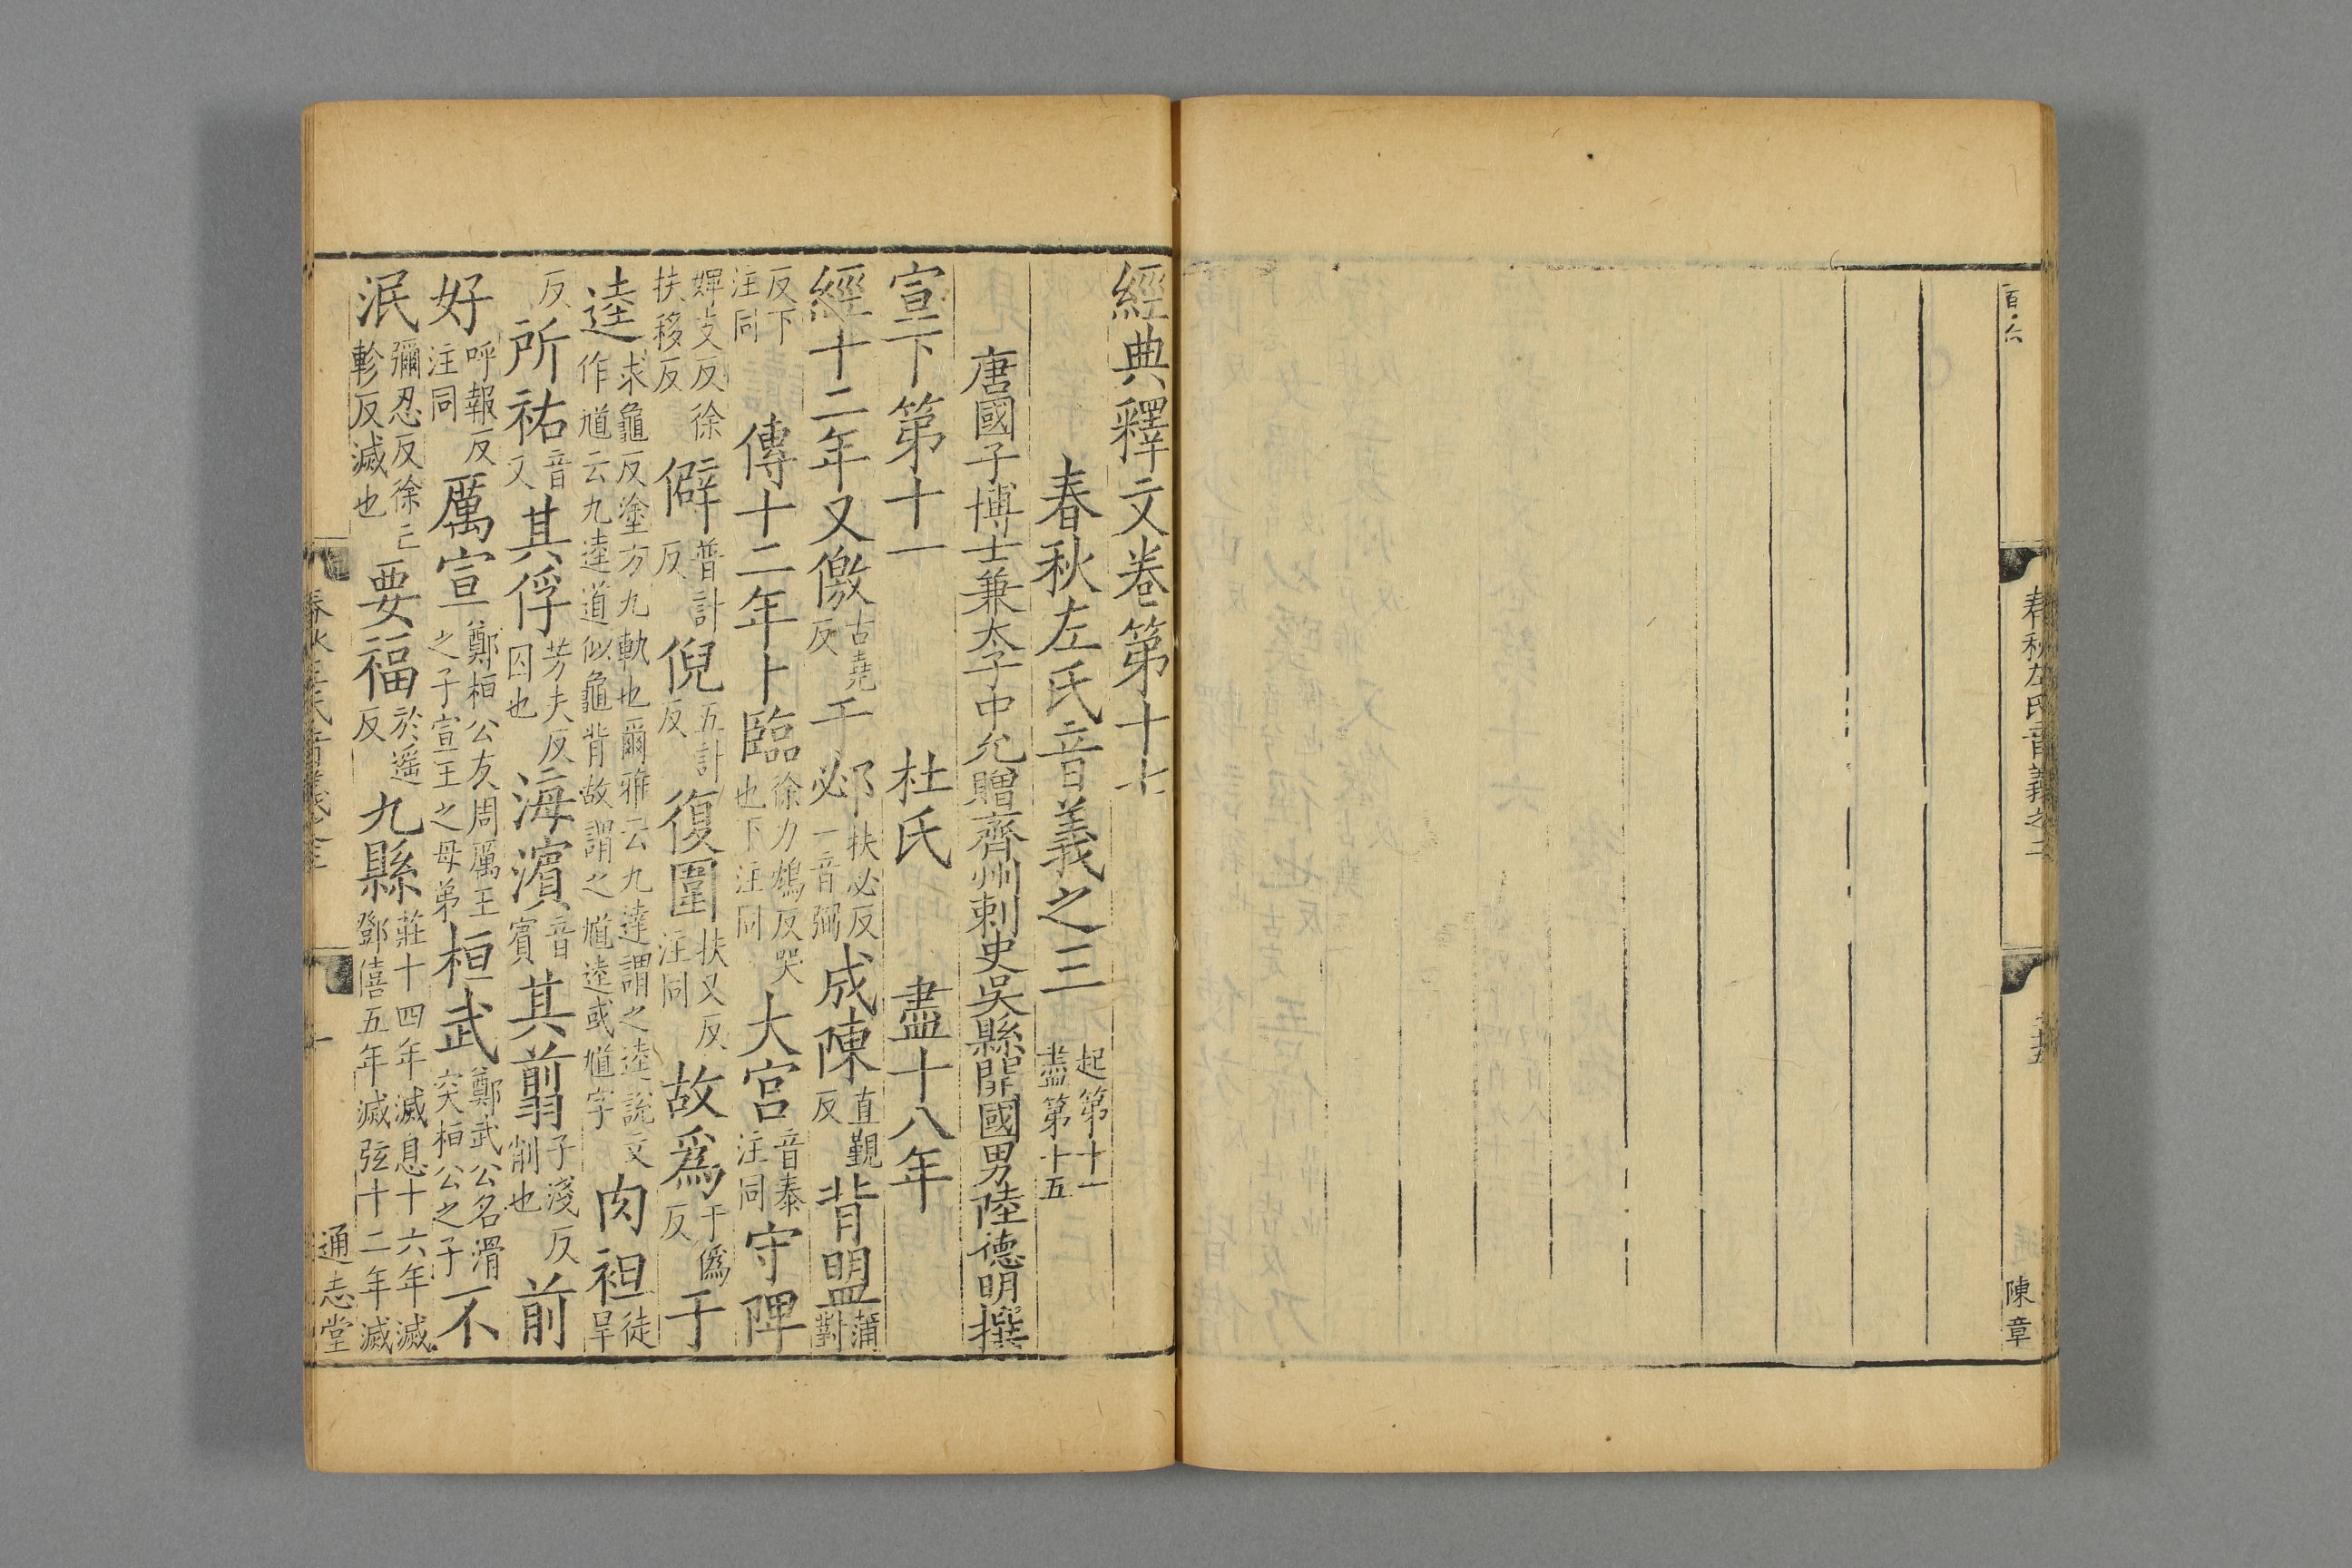 百六
春秋左氏音義之二
陳章
經典釋文卷第十七
春秋左氏音義之三 起第十一 盡第十五
唐國子博士兼太子中允贈齊州刺史吳縣開國男陸德明撰
宣下第十一 杜氏 盡十八年
經十二年又徼 古堯反 于邲 扶必反一音弼 成陳 直覲反 背盟 蒲對
反下注同 傳十二年卜臨 徐力鴆反哭也下注同 大宮 音泰注同 守陴
婢支反徐扶移反 僻 普計反 倪 五計反 復圍 扶又反注同 故爲 于僞反 于
逵 求龜反塗方九軌也爾雅云九達謂之逵說文作馗云九逵道似龜背故謂之馗逵或馗字 肉袒 徒旱
反 所祐 音又 其俘 芳夫反囚也 海濱 音賓 其翦 子淺反削也 前
好 呼報反注同 厲宣 鄭桓公友周厲王之子宣王之母弟 桓武 鄭武公名滑突桓公之子 不
泯 彌忍反徐亡軫反滅也 要福 於遥反 九縣 莊十四年滅息十六年滅鄧僖五年滅弦十二年滅
春秋左氏音義之三 一 通志堂